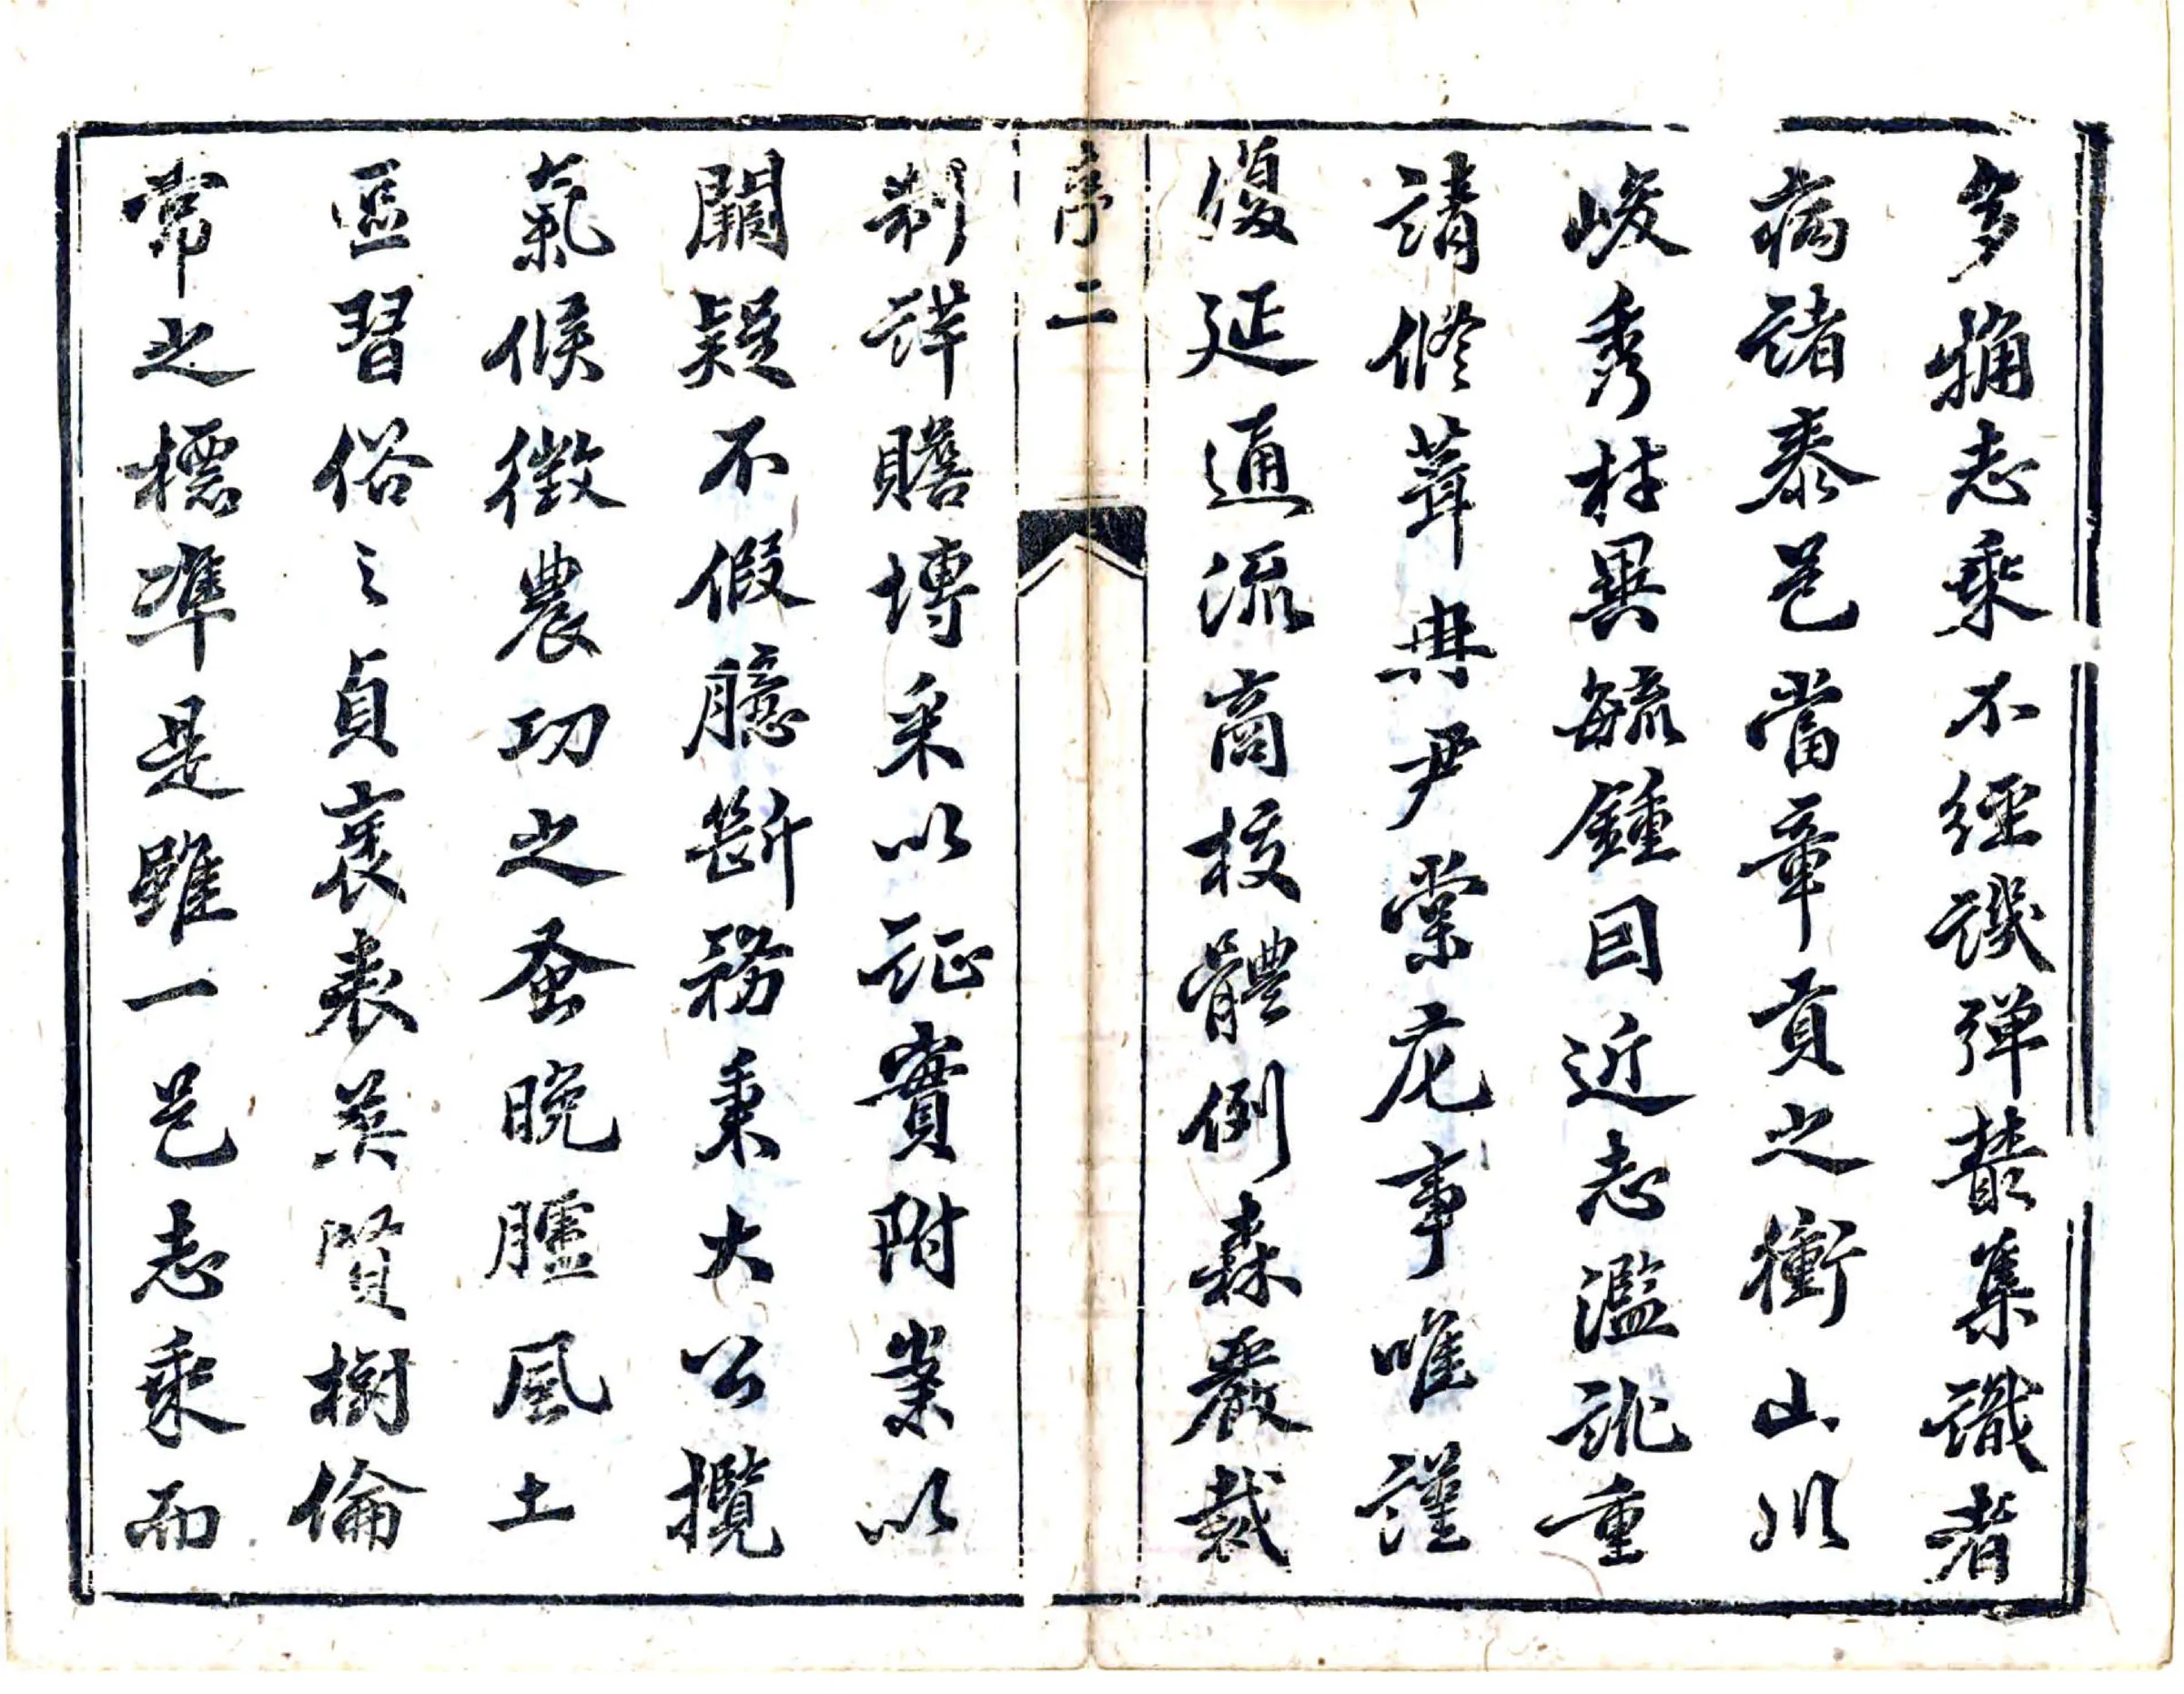 多痡志乘不經譏弹叢集識者
病諸泰邑當章貢之衝山川
峻秀材異毓鍾囙近志濫訛重
請修葺典尹棠庀事唯謹
復延通流商校體例森嚴裁
序二
制詳贍博采以証實附案以
闕疑不假臆斷務秉大公攬
氣候徵農功之蚤晚臚風土
區習俗之貞衺表英賢樹倫
常之標準是雖一邑志乘而